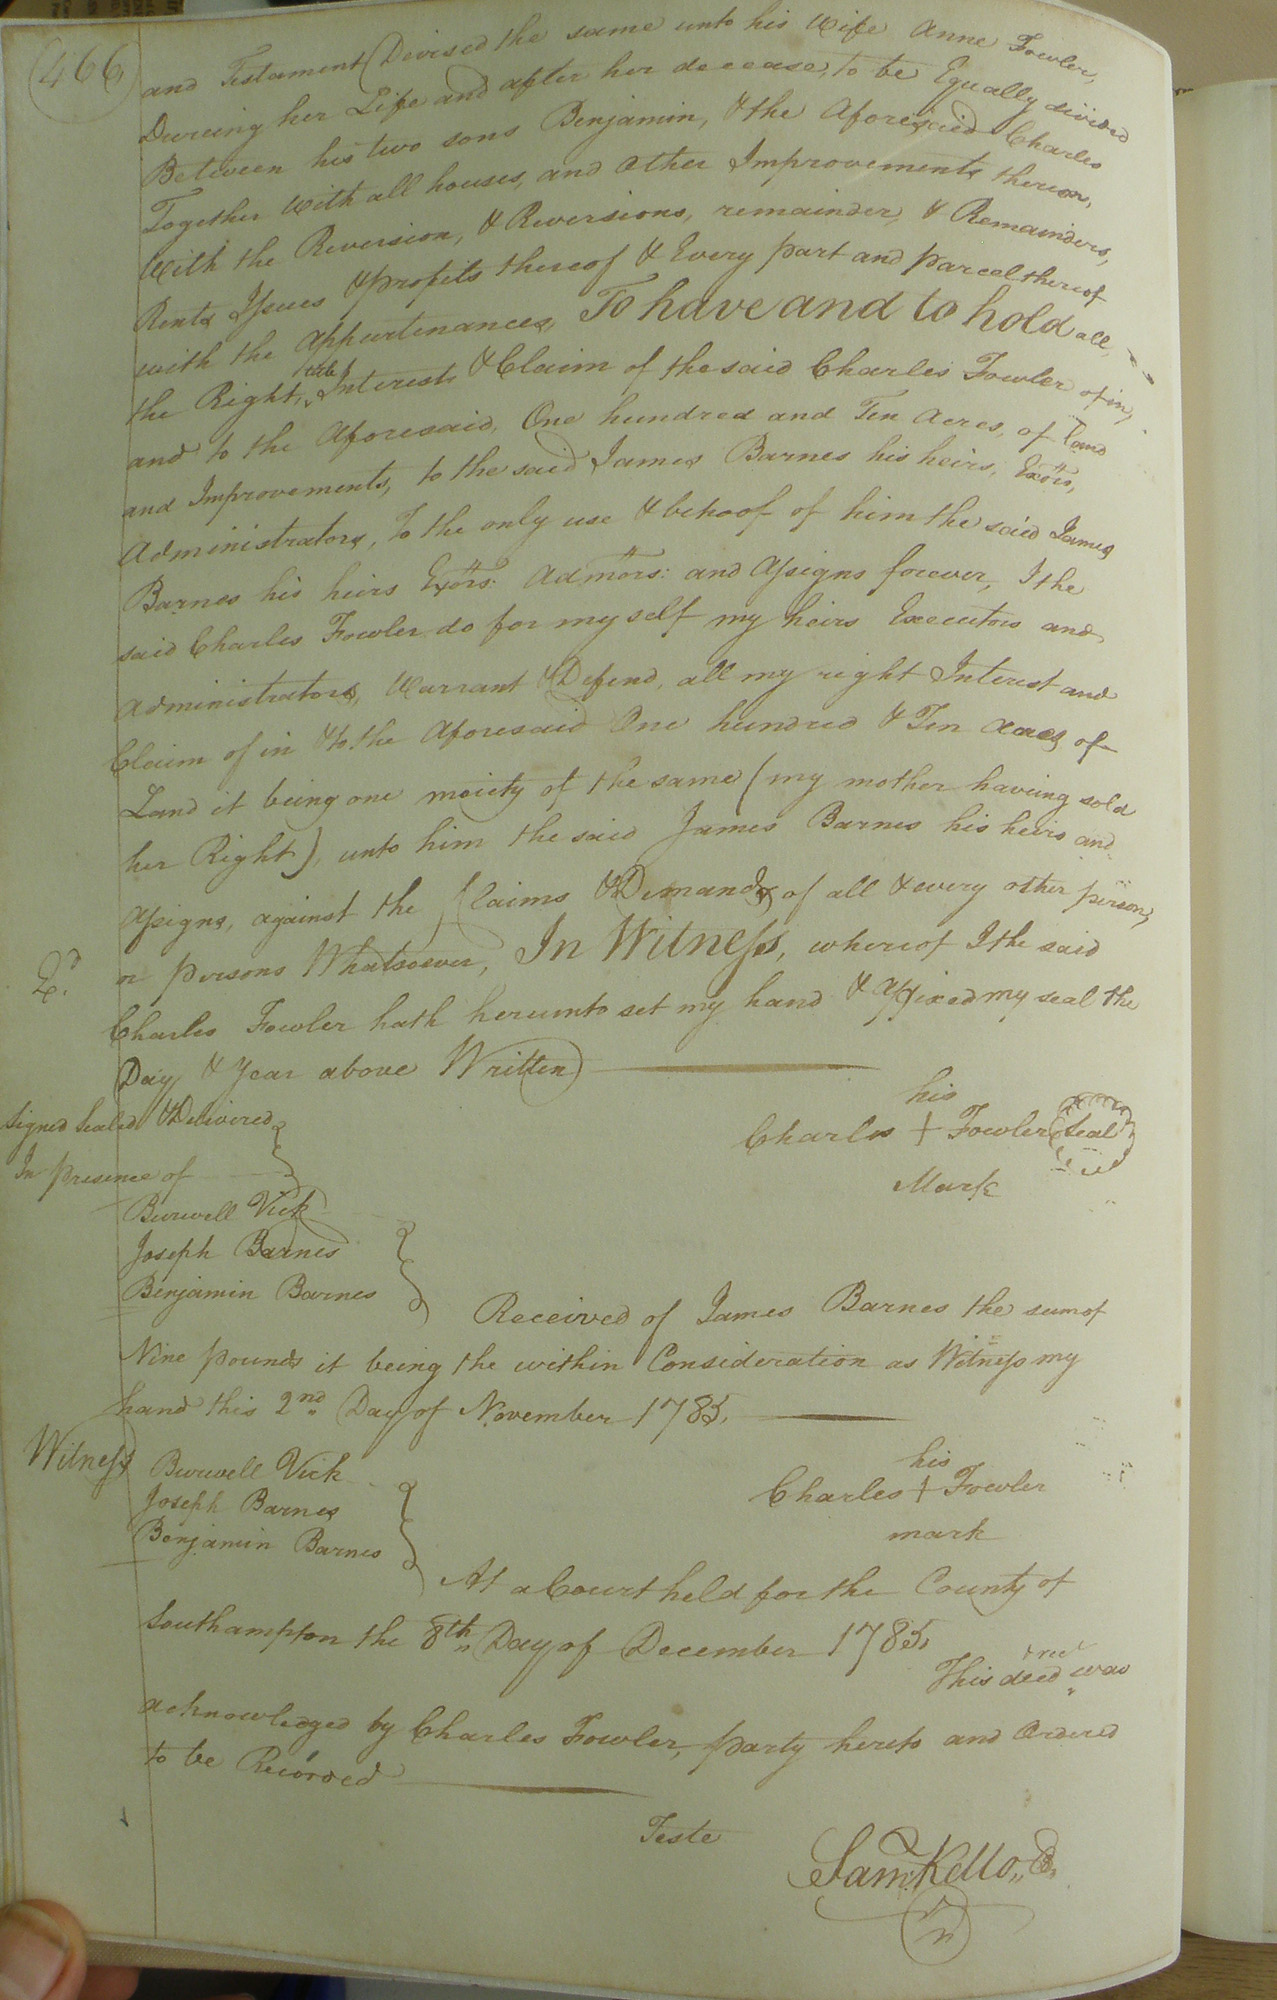 466
and Testament Devised the same unto his Wife Anne Fowler,
Dureing her Life and after her decease, to be Equally divided
Between his two sons Benjamin, & the Aforesaid Charles
Together With all houses, and Other Improvements thereon,
With the Reversion, & Reversions, remainder, & Remainders,
Rents Issues & profits thereof & Every part and parcel thereof
with the Appurtenances, To have and to hold all,
the Right, title Interest & Claim of the said Charles Fowler of in,
and to the Aforesaid, One hundred and Ten Acres, of Land
and Improvements, to the said James Barnes his heirs, Exors,
Administrators, To the only use & behoof of him the said James
Barnes his heirs Exors: Admors: and Assigns forever, I the
said Charles Fowler do for my self my heirs Executors and
Administrators, Warrant & Defend, all my right Interest and
Claim of in & to the Aforesaid One hundred & Ten Acres of
Land it being one moiety of the same (my mother haveing sold
her Right), unto him the said James Barnes his heirs and
Assigns, against the Claims & Demands of all & every other person,
or persons Whatsoever, In Witness, whereof I the said
Charles Fowler hath hereunto set my hand & Affixed my seal the
Day & Year above Written
Signed Sealed & Delivered
In presence of
his
Charles + Fowler Seal
Mark
Burwell Vick
Joseph Barnes
Benjamin Barnes
Received of James Barnes the sum of
Nine pounds it being the within Consideration as Witness my
hand this 2nd Day of November 1785.
Witness Burwell Vick
Joseph Barnes
Benjamin Barnes
his
Charles + Fowler
mark
At a Court held for the County of
Southampton the 8th Day of December 1785,
This deed & rect was
acknowledged by Charles Fowler, party hereto and Ordered
to be Recorded
Teste
Saml. Kello,,